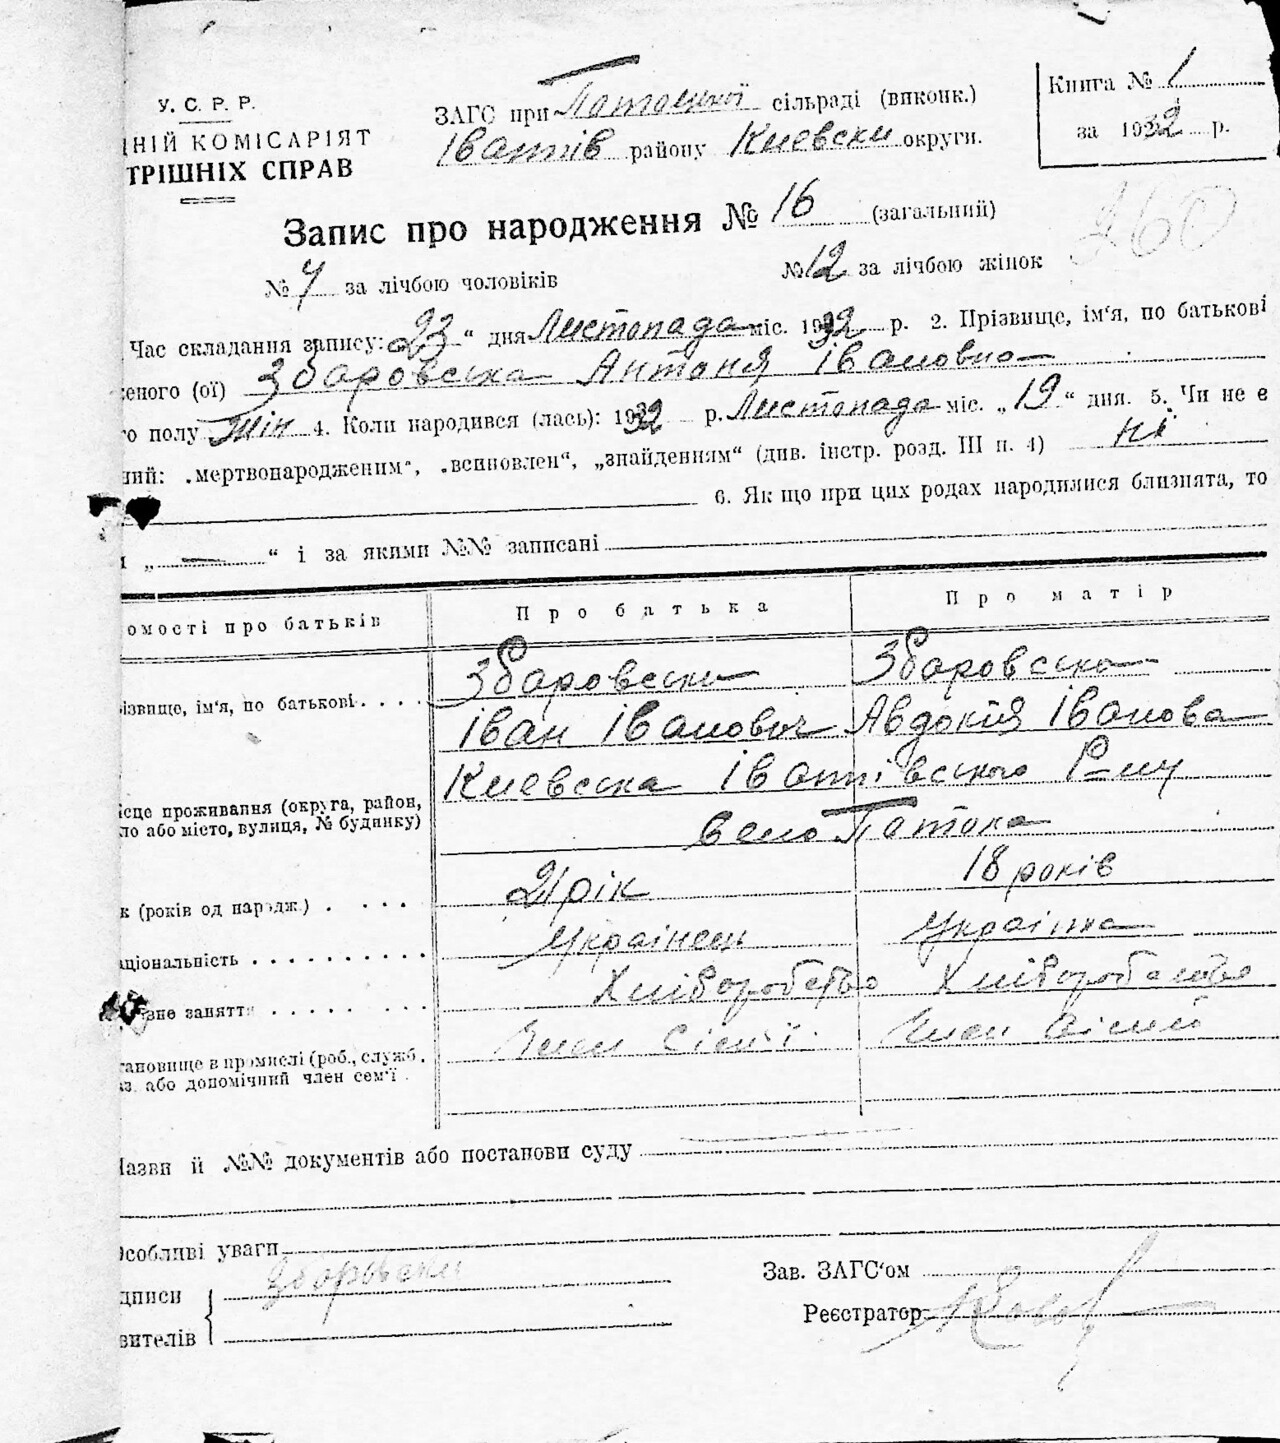 У. С. Р. Р.
НІЙ КОМІСАРІЯТ
ТРІШНІХ СПРАВ
ЗАГС при Потоцької сільраді (виконк.)
Іванків району Киевски округи.
Книга № 1
за 1932 р.
Запис про народження № 16 (загальний)
260
№ 4 за лічбою чоловіків
№ 12 за лічбою жінок
Час складання запису: 23 “ дня Листопада міс. 1932 р. 2. Прізвище, ім'я, по батькові
женого (ої) Збаровська Антоня Івановна
о полу жін 4. Коли народився (лась): 1932 р. Листопада міс. „19“ дня. 5. Чи не є
ний: „мертвонародженим“, „всиновлен“, „знайденням“ (див. інстр. розд. III п. 4) ні
6. Як що при цих родах народилися близнята, то
и „ — “ і за якими №№ записані
омості про батьків
Про батька
Про матір
ізвище, ім'я, по батькові
Збаровски
Збаровска
Іван Іванович
Авдокія Іванова
ісце проживання (округа, район,
ло або місто, вулиця, № будинку)
Киевска Іванківського Р-ну
село Потока
к (років од народж.)
21 рік
18 років
аціональність
Українець
Українка
вне заняття
Хліборобство
Хліборобство
тановище в промислі (роб., служб.
аз. або допомічний член сем'ї
Член Сім'ї
Член
Назви й №№ документів або постанови суду
Особливі уваги
дписи
вителів
Зборовски
Зав. ЗАГС'ом
Реєстратор